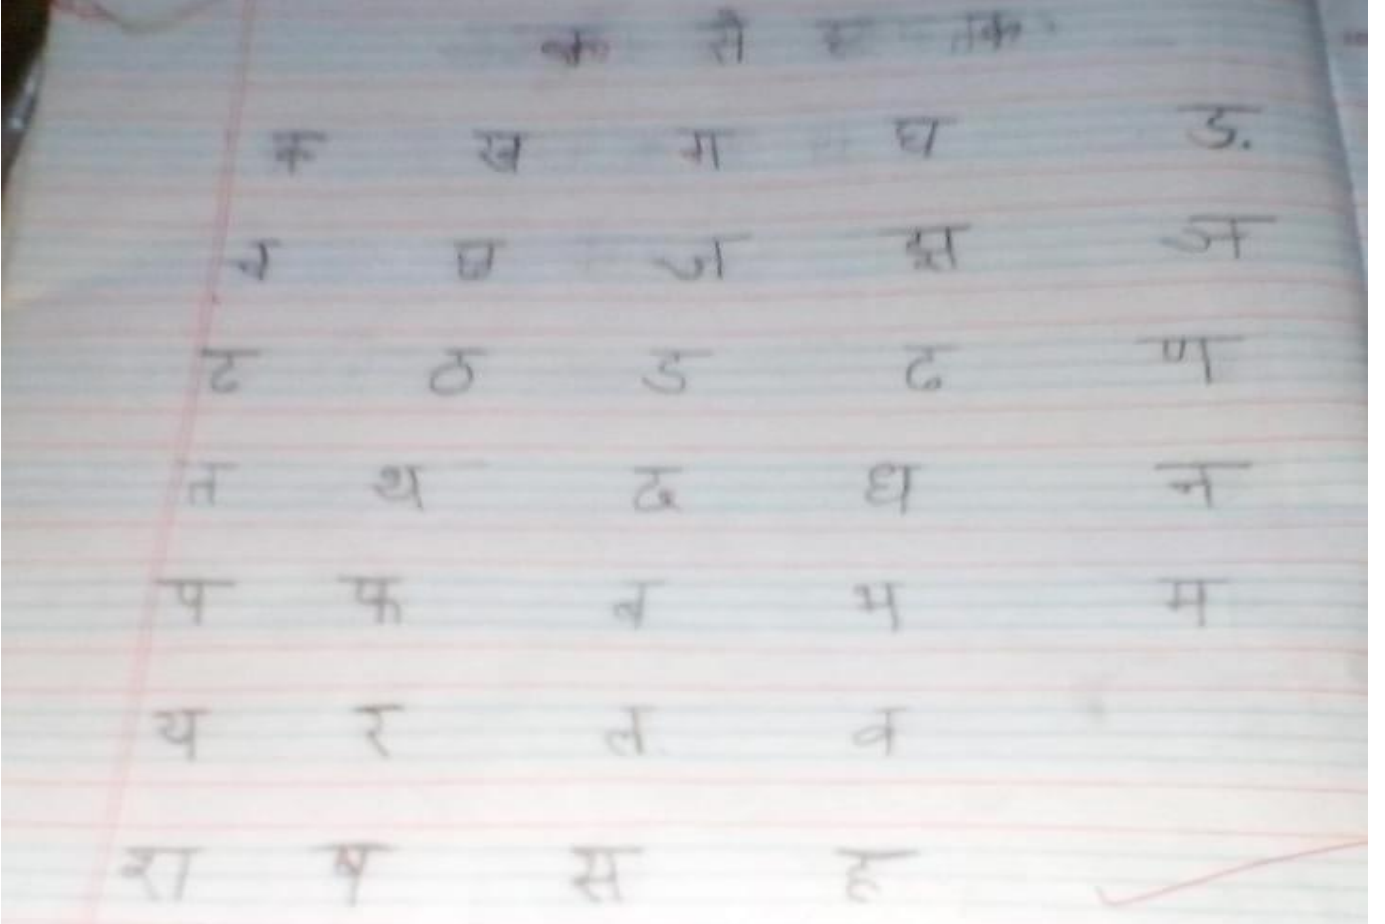 क से ह तक
क ख ग घ ड.
च छ ज झ ञ
ट ठ ड ढ ण
त थ द ध न
प फ ब भ म
य र ल व
श ष स ह